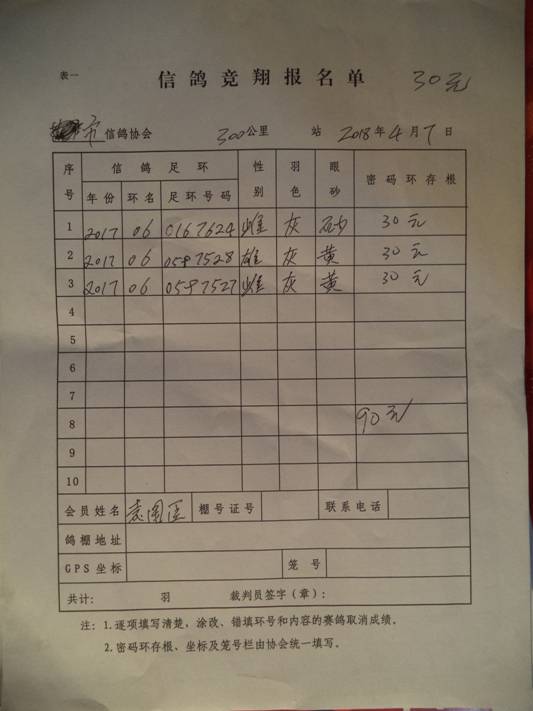 表一 信鸽竞翔报名单 30元
市信鸽协会 300公里 站 2018年4月7日
序号 信鸽足环 性别 羽色 眼砂 密码环存根
年份 环名 足环号码
1 2017 06 0167624 雌 灰 砂 30元
2 2017 06 0597528 雄 灰 黄 30元
3 2017 06 0597527 雌 灰 黄 30元
4
5
6
7
8 90元
9
10
会员姓名 袁国 棚号证号 联系电话
鸽棚地址
GPS坐标 笼号
共计: 羽 裁判员签字（章）:
注: 1.逐项填写清楚，涂改、错填环号和内容的赛鸽取消成绩。
2.密码环存根、坐标及笼号栏由协会统一填写。